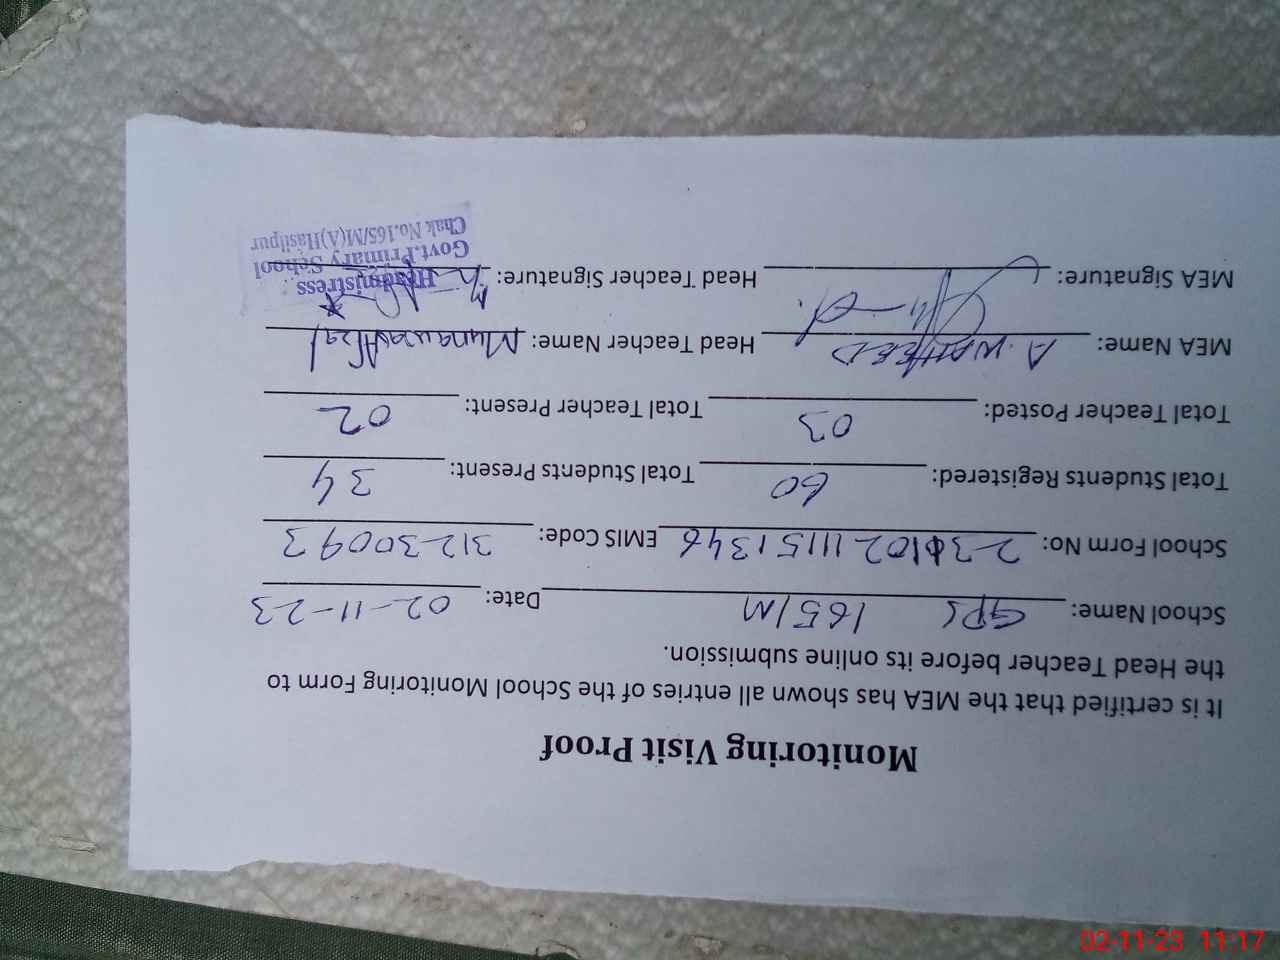 Monitoring Visit Proof
It is certified that the MEA has shown all entries of the School Monitoring Form to
the Head Teacher before its online submission.
School Name: GPS 165/M Date: 02-11-23
School Form No: EMIS Code: 31230093
Total Students Registered: 60 Total Students Present: 34
Total Teacher Posted: 03 Total Teacher Present: 02
MEA Name: A. WAHEED Head Teacher Name: Munawar Afzal
MEA Signature: Head Teacher Signature:
Headmistress
Govt.Primary School
Chak No.165/M(A)Hasilpur
02-11-23 11:17